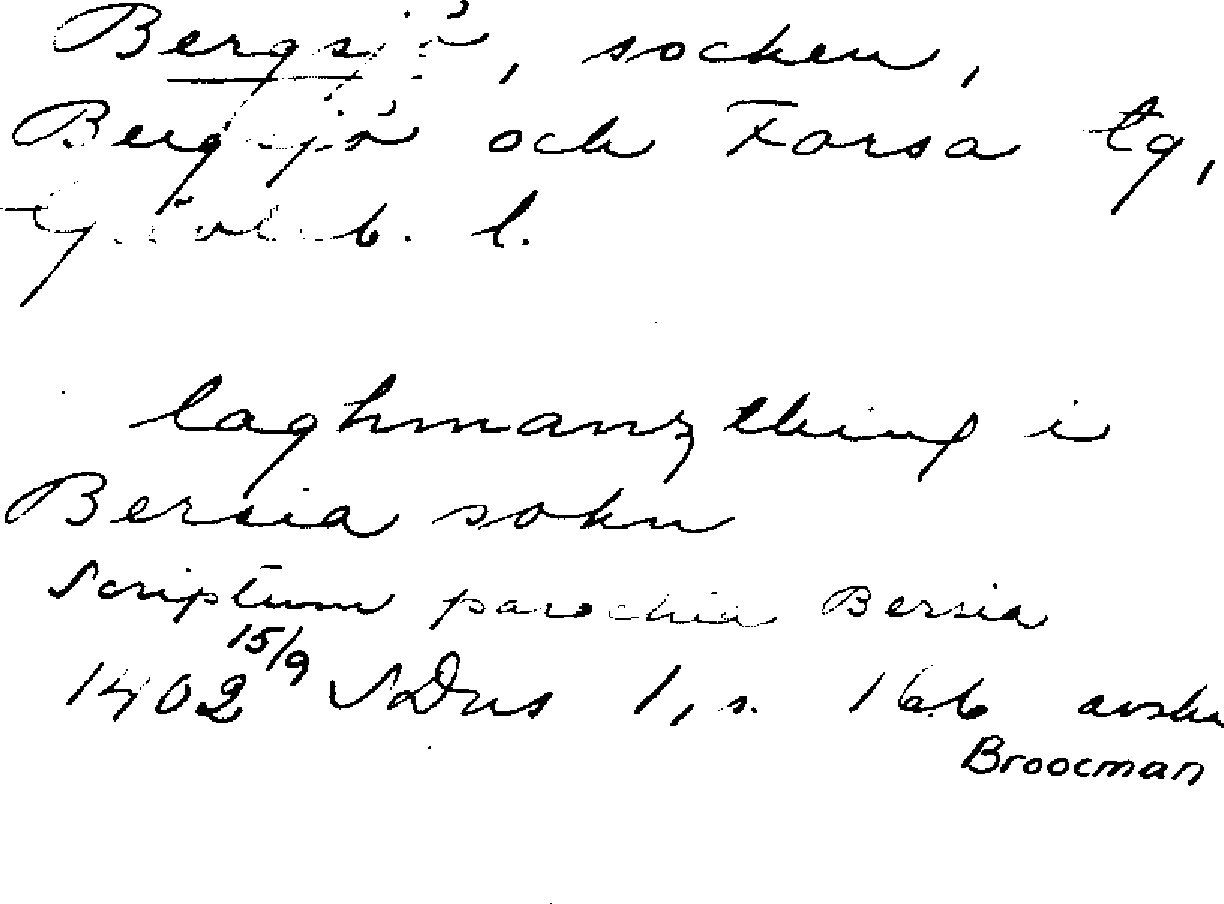 Bergsjö, socken,
Bergsjö och Forsa tg,
Gävleb. l.
laghmanzthing i
Bersia sokn
Scriptum parochia Bersia
1402 15/9 SDns 1, s. 166 avskr
Broocman